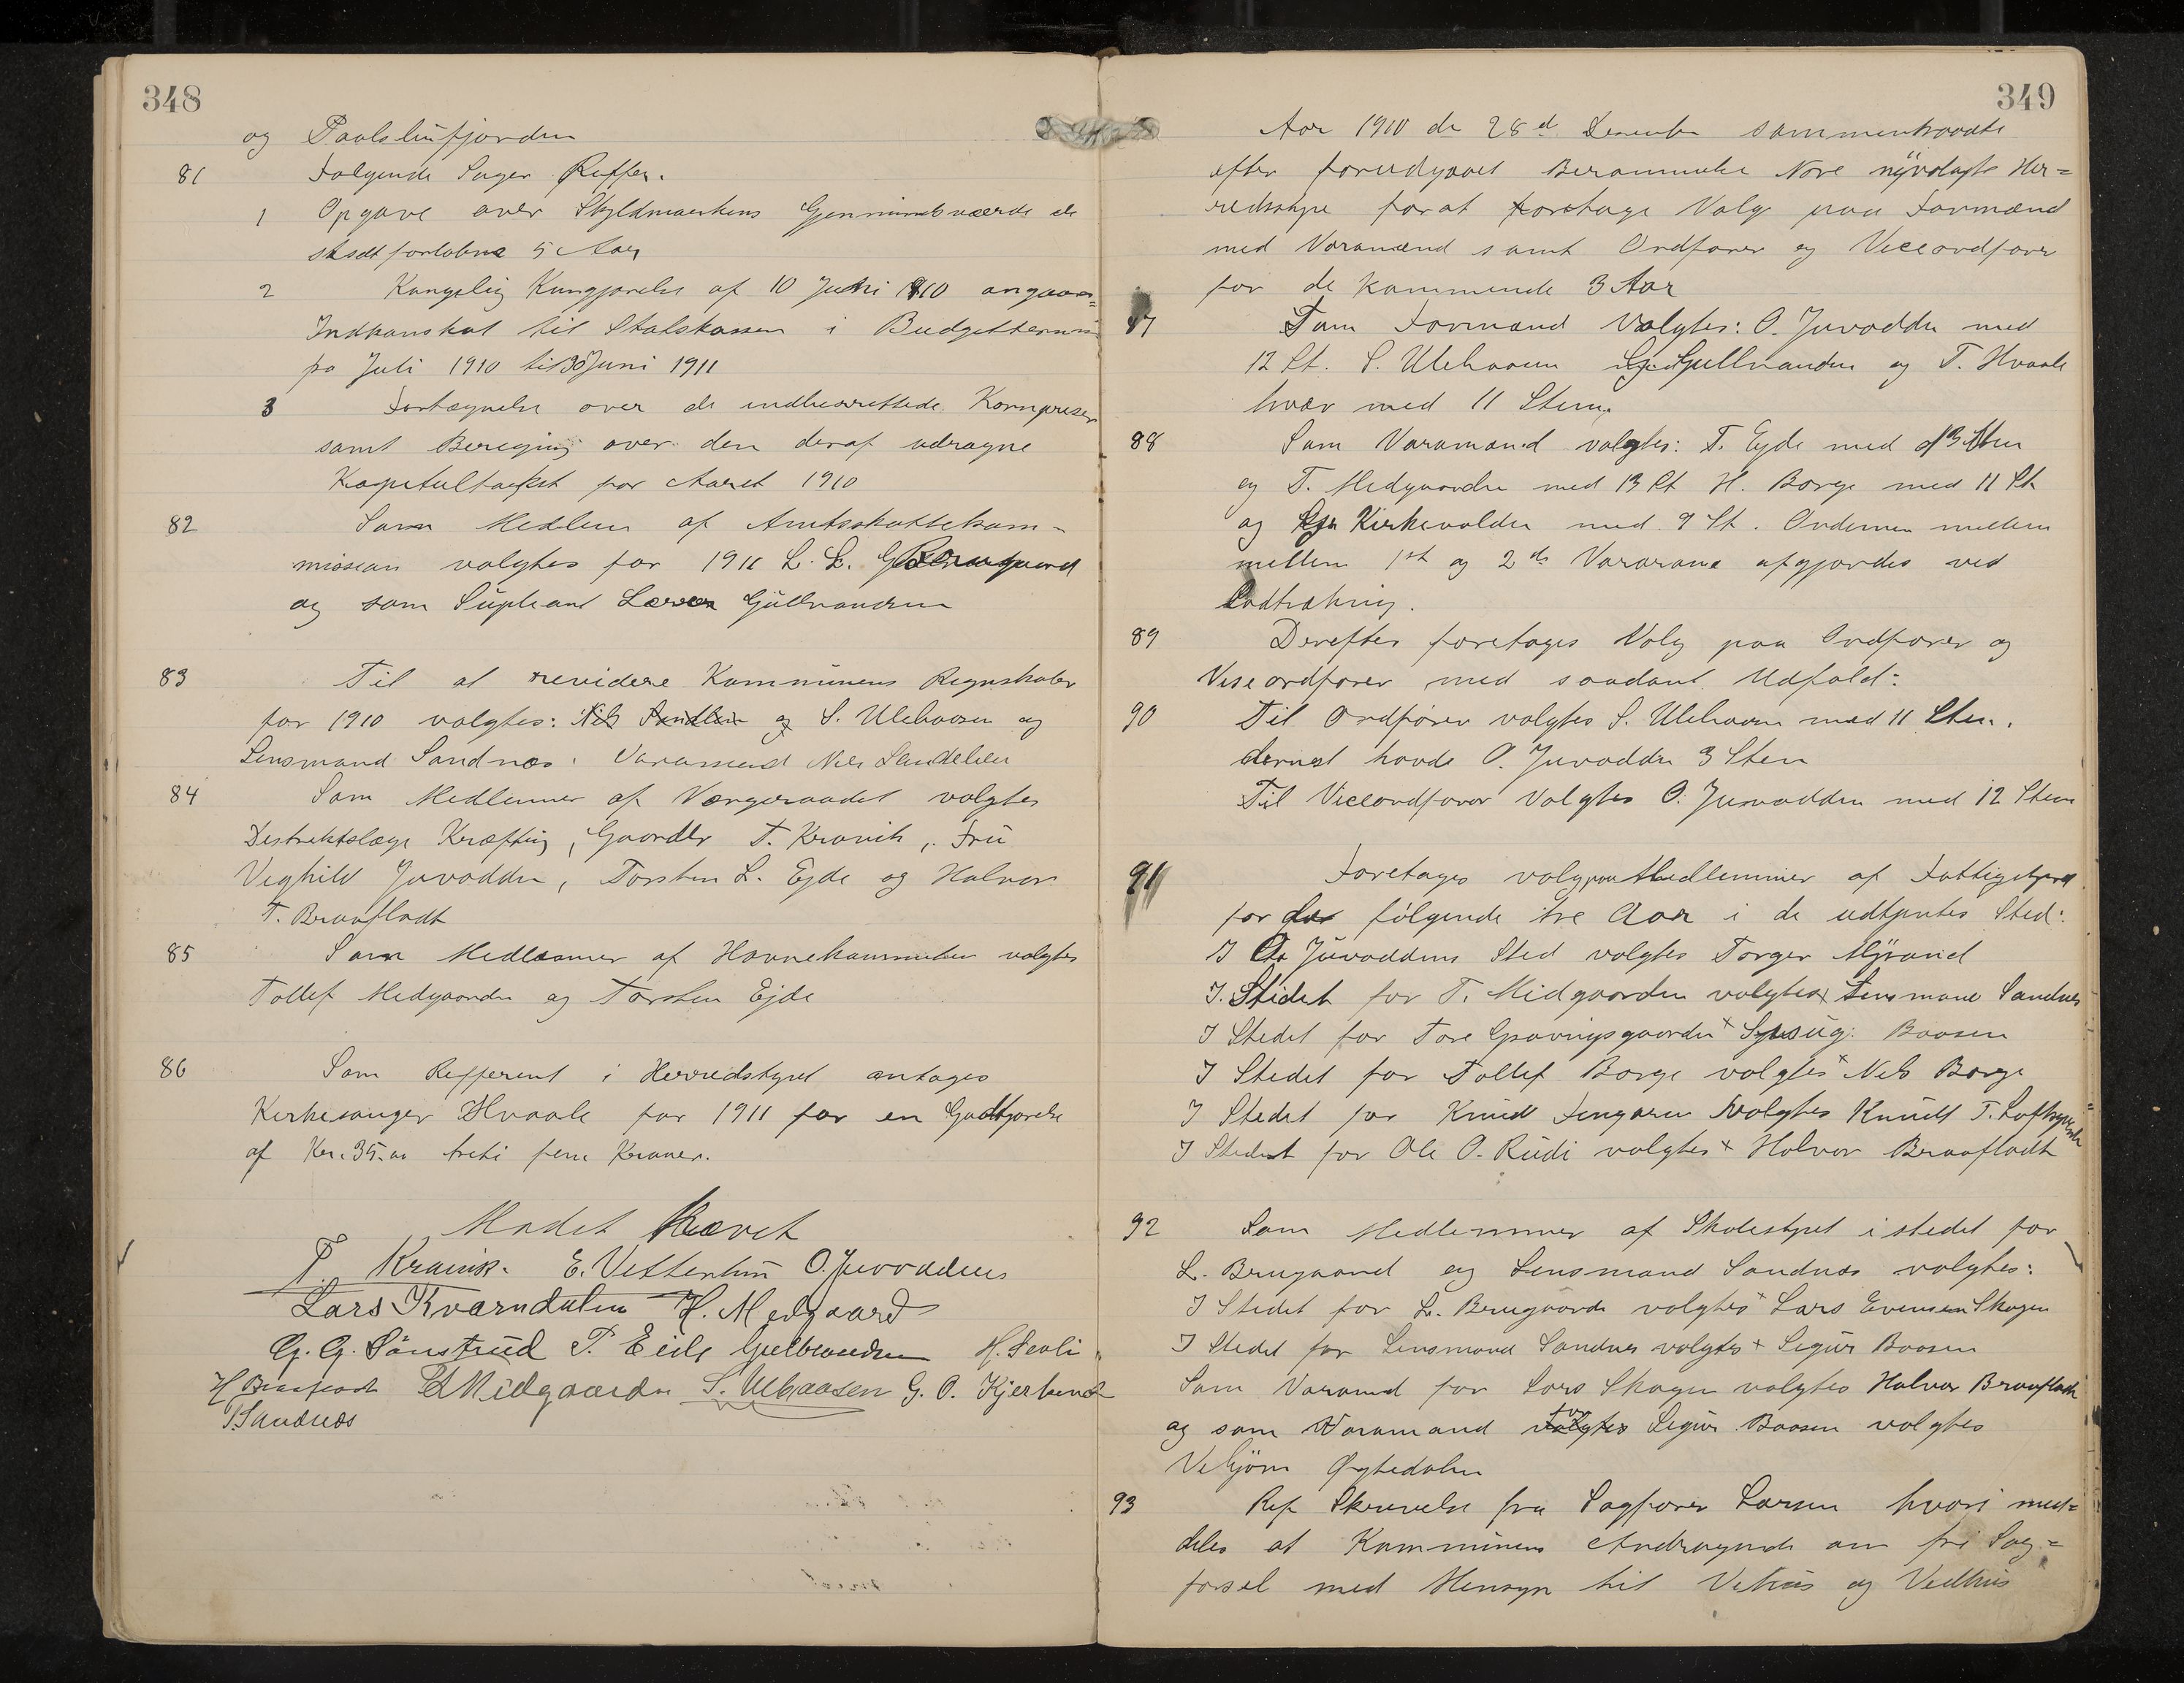 348
og Paalslinfjorden
81 Følgende Sager Reffer.
1 Opgave over Skyldmarkens Gjennimsnitsværde de
sksdt forløbne 5 Aar
2 Kongelig Kungjørelse af 10 Juni 1910 angaaen=
Indkomskat til Statskassen i Budgettermin
fra Juli 1910 til 30 Juni 1911
3 Fortegnelse over de indberettede Kornpriser
samt Beregning over den deraf udragne
Kapitultaxt for Aaret 1910
82 Som Medlem af Amtsskattekom-
mission valgtes for 1911 L. L.
og som Supleant Gullbrandsen
83 Til at revidere Kommunens Regnskaber
for 1910 valgtes: Nils Sandlein og S. Ulehaasen og
Lensmand Sandnæs. Varamend Nils Sandelien
84 Som Medlemmer af Vergeraadet valgtes
Destriktslæge Kræfting, Gaardbr T. Kravik, Frú
Veghild Juvodden, Torsten L. Ejde og Halvor
T. Braafladt
85 Som Medlemmer af Havnekommiteen valgtes
Tollef Medgaarden og Torsten Ejde
86 Som Refferent i Herredstyret antages
Kirkesanger Hvaale for 1911 for en Godtgjørelse
af Kr. 35.00 treti fem Kroner.
Mødet Hævet
T. Kravik. E. Vetterhun O. Juvodden
Lars Kværndalen H. Medgaard
G. G. Sønsterud T. Eide Gulbrandsen H. Seoli
H Braafladt T Midgaarden S. Ulehaasen G. O. Kjerkevold
P. Sandnæs
349
Aar 1910 de 28d Desember sammentraadte
efter forudgaaet Berammelse Nore nÿvalgte Her=
redsstyre for at foretage Valg paa Formænd
med Varamænd samt Ordfører og Viceordfører
for de kommende 3 Aar
87 Som Formænd Valgtes: O. Juvodden med
12 St. S. Ulehaasen Gullbrandsen og T. Hvaale
hver med 11 Stem.
88 Som Varamænd valgtes: T. Ejde med 13 Stem
og T. Medgaarden med 13 St H. Borge med 11 St
og Kirkevolden med 9 St. Ordenen mellem
mellem 1st og 2de Vararana afgjordes ved
Lodtrækning.
89 Derefter foretages Valg paa Ordfører og
Viseordfører med saadant Udfald:
90 Til Ordfører valgtes S. Ulehaasen med 11 Stem.
dernæst havde O. Juvodden 3 Stem
Til Viceordfører Valgtes O. Juvodden med 12 Stem
91 Foretages valg paa Medlemmer af Fattigstyret
for de følgende tre Aar i de udtrædtes Sted:
I O. Juvoddens Sted valgtes Torger Myrand
I Stedet for T. Midgaarden valgtes x Lensmand Sandnæs
I Stedet for Tore Gravningsgaarden x Sigur Baasen
I Stedet for Tollef Borge valgtes x Nils Borge
I Stedet for Knud valgtes Knudt T. Lofthus
I Stedet for Ole O. Rudi valgtes x Halvor Braafladt
92 Som Medlemmer af Skolestyret i stedet for
L. Brugaard og Lensmand Sandnæs valgtes:
I Stedet for L. Brugaard valgtes x Lars Evensen Skogen
I Stedet for Lensmand Sandnes valgtes x Sigur Baasen
Som Varamd for Lars Skogen valgtes Halvor Braafladt
og som Varamand valgtes for Sigur Baasen valgtes
Vebjørn Øgtedalen
93 Ref Skrivelse fra Sagfører Larsen hvori med=
deles at Kommunens Andragende om fri Sag=
førsel med Hensyn til Vetrus og Vedhus